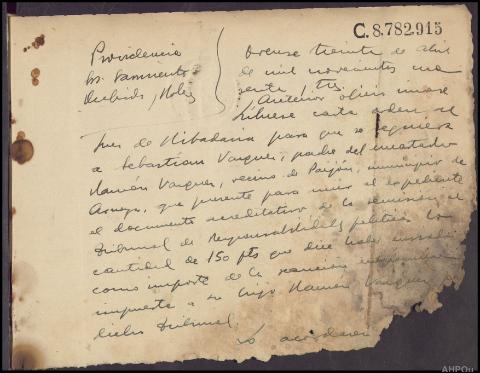 C.8.782.915
Providencia
Sres. Sarmiento
Quebido, Noles
Orense treinta de abril
de mil novecientos cua
renta y tres
Anterior oficio unase
librese carta orden al
Juez de Ribadavia para que se requiera
a Sebastian Vazquez, padre del encartado
Ramón Vazquez, vecino de municipio de
que presente para unir al expediente
el documento acreditativo de la al
Tribunal de Responsabilidades politicas la
cantidad de 150 pts que dice haber
como importe de la sancion
impuesta a su hijo Ramón Vazquez
dicho Tribunal.
Lo acordaron
AHPOu